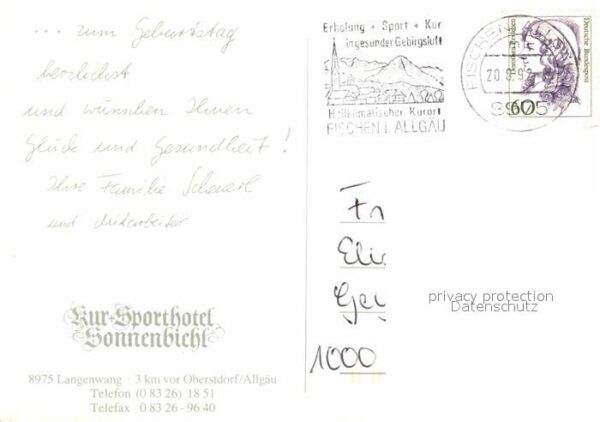 ... zum Geburtstag
herzlichst
und wünschen Ihnen
Glück und Gesundheit!
Ihre Familie
und Mitarbeiter
Kur-Sporthotel
Sonnenbichl
8975 Langenwang · 3 km vor Oberstdorf/Allgäu
Telefon (0 83 26) 18 51
Telefax 0 83 26 - 96 40
Erholung + Sport + Kur
in gesunder Gebirgsluft
Heilklimatischer Kurort
FISCHEN I. ALLGÄU
FISCHEN
8975
60
Deutsche Bundespost
Fr
Eli
Ge
1000
privacy protection
Datenschutz